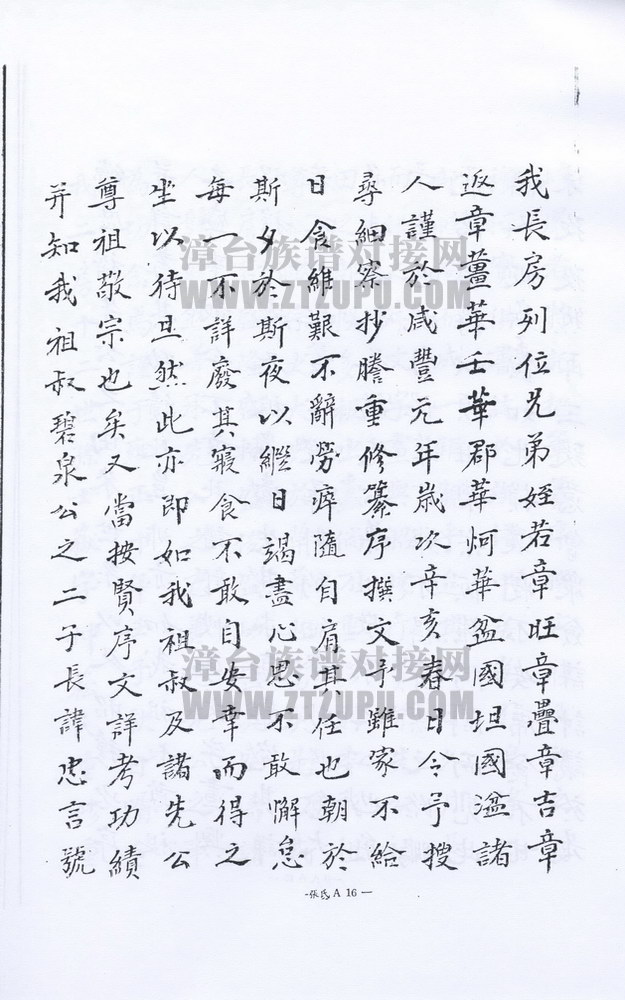 我長房列位兄弟姪若章旺章疊章吉章
返章薑華壬華郡華炯華盆國坦國溢諸
人謹於咸豐元年歲次辛亥春日令予搜
尋細察抄謄重修纂序撰文予雖家不給
日食維艱不辭勞瘁隨自肩其任也朝於
斯夕於斯夜以繼日竭盡心思不敢懈怠
每一不詳廢其寢食不敢自安幸而得之
坐以待旦然此亦即如我祖叔及諸先公
尊祖敬宗也矣又當按賢序文詳考功績
并知我祖叔碧泉公之二子長諱忠言號
漳台族谱对接网
WWW.ZTZUPU.COM
漳台族谱对接网
WWW.ZTZUPU.COM
-张氏 A 16 —